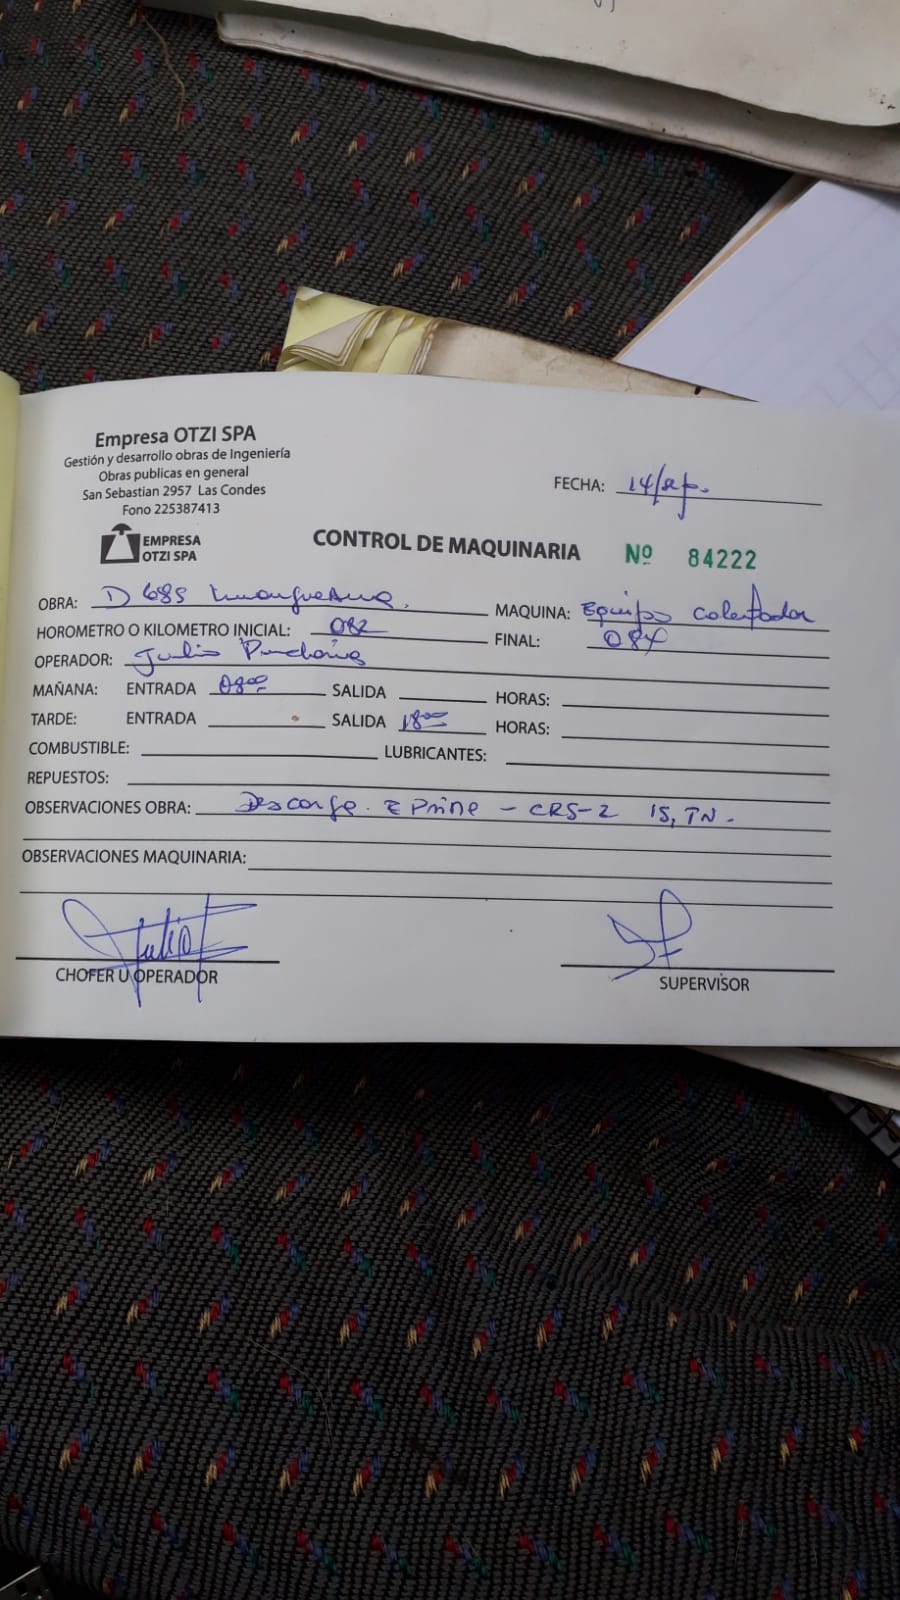 Empresa OTZI SPA
Gestión y desarrollo obras de Ingeniería
Obras publicas en general
San Sebastian 2957 Las Condes
Fono 225387413
EMPRESA
OTZI SPA
FECHA: 14/
CONTROL DE MAQUINARIA Nº 84222
OBRA: D 685
MAQUINA: Equipo calentador
HOROMETRO O KILOMETRO INICIAL: 082
FINAL:
OPERADOR: Julio
MAÑANA: ENTRADA 08⁰⁰ SALIDA HORAS:
TARDE: ENTRADA SALIDA 18⁰⁰ HORAS:
COMBUSTIBLE: LUBRICANTES:
REPUESTOS:
OBSERVACIONES OBRA: Descarga. E Prime - CRS-2 15, TN.
OBSERVACIONES MAQUINARIA:
Julio
CHOFER U OPERADOR
SUPERVISOR